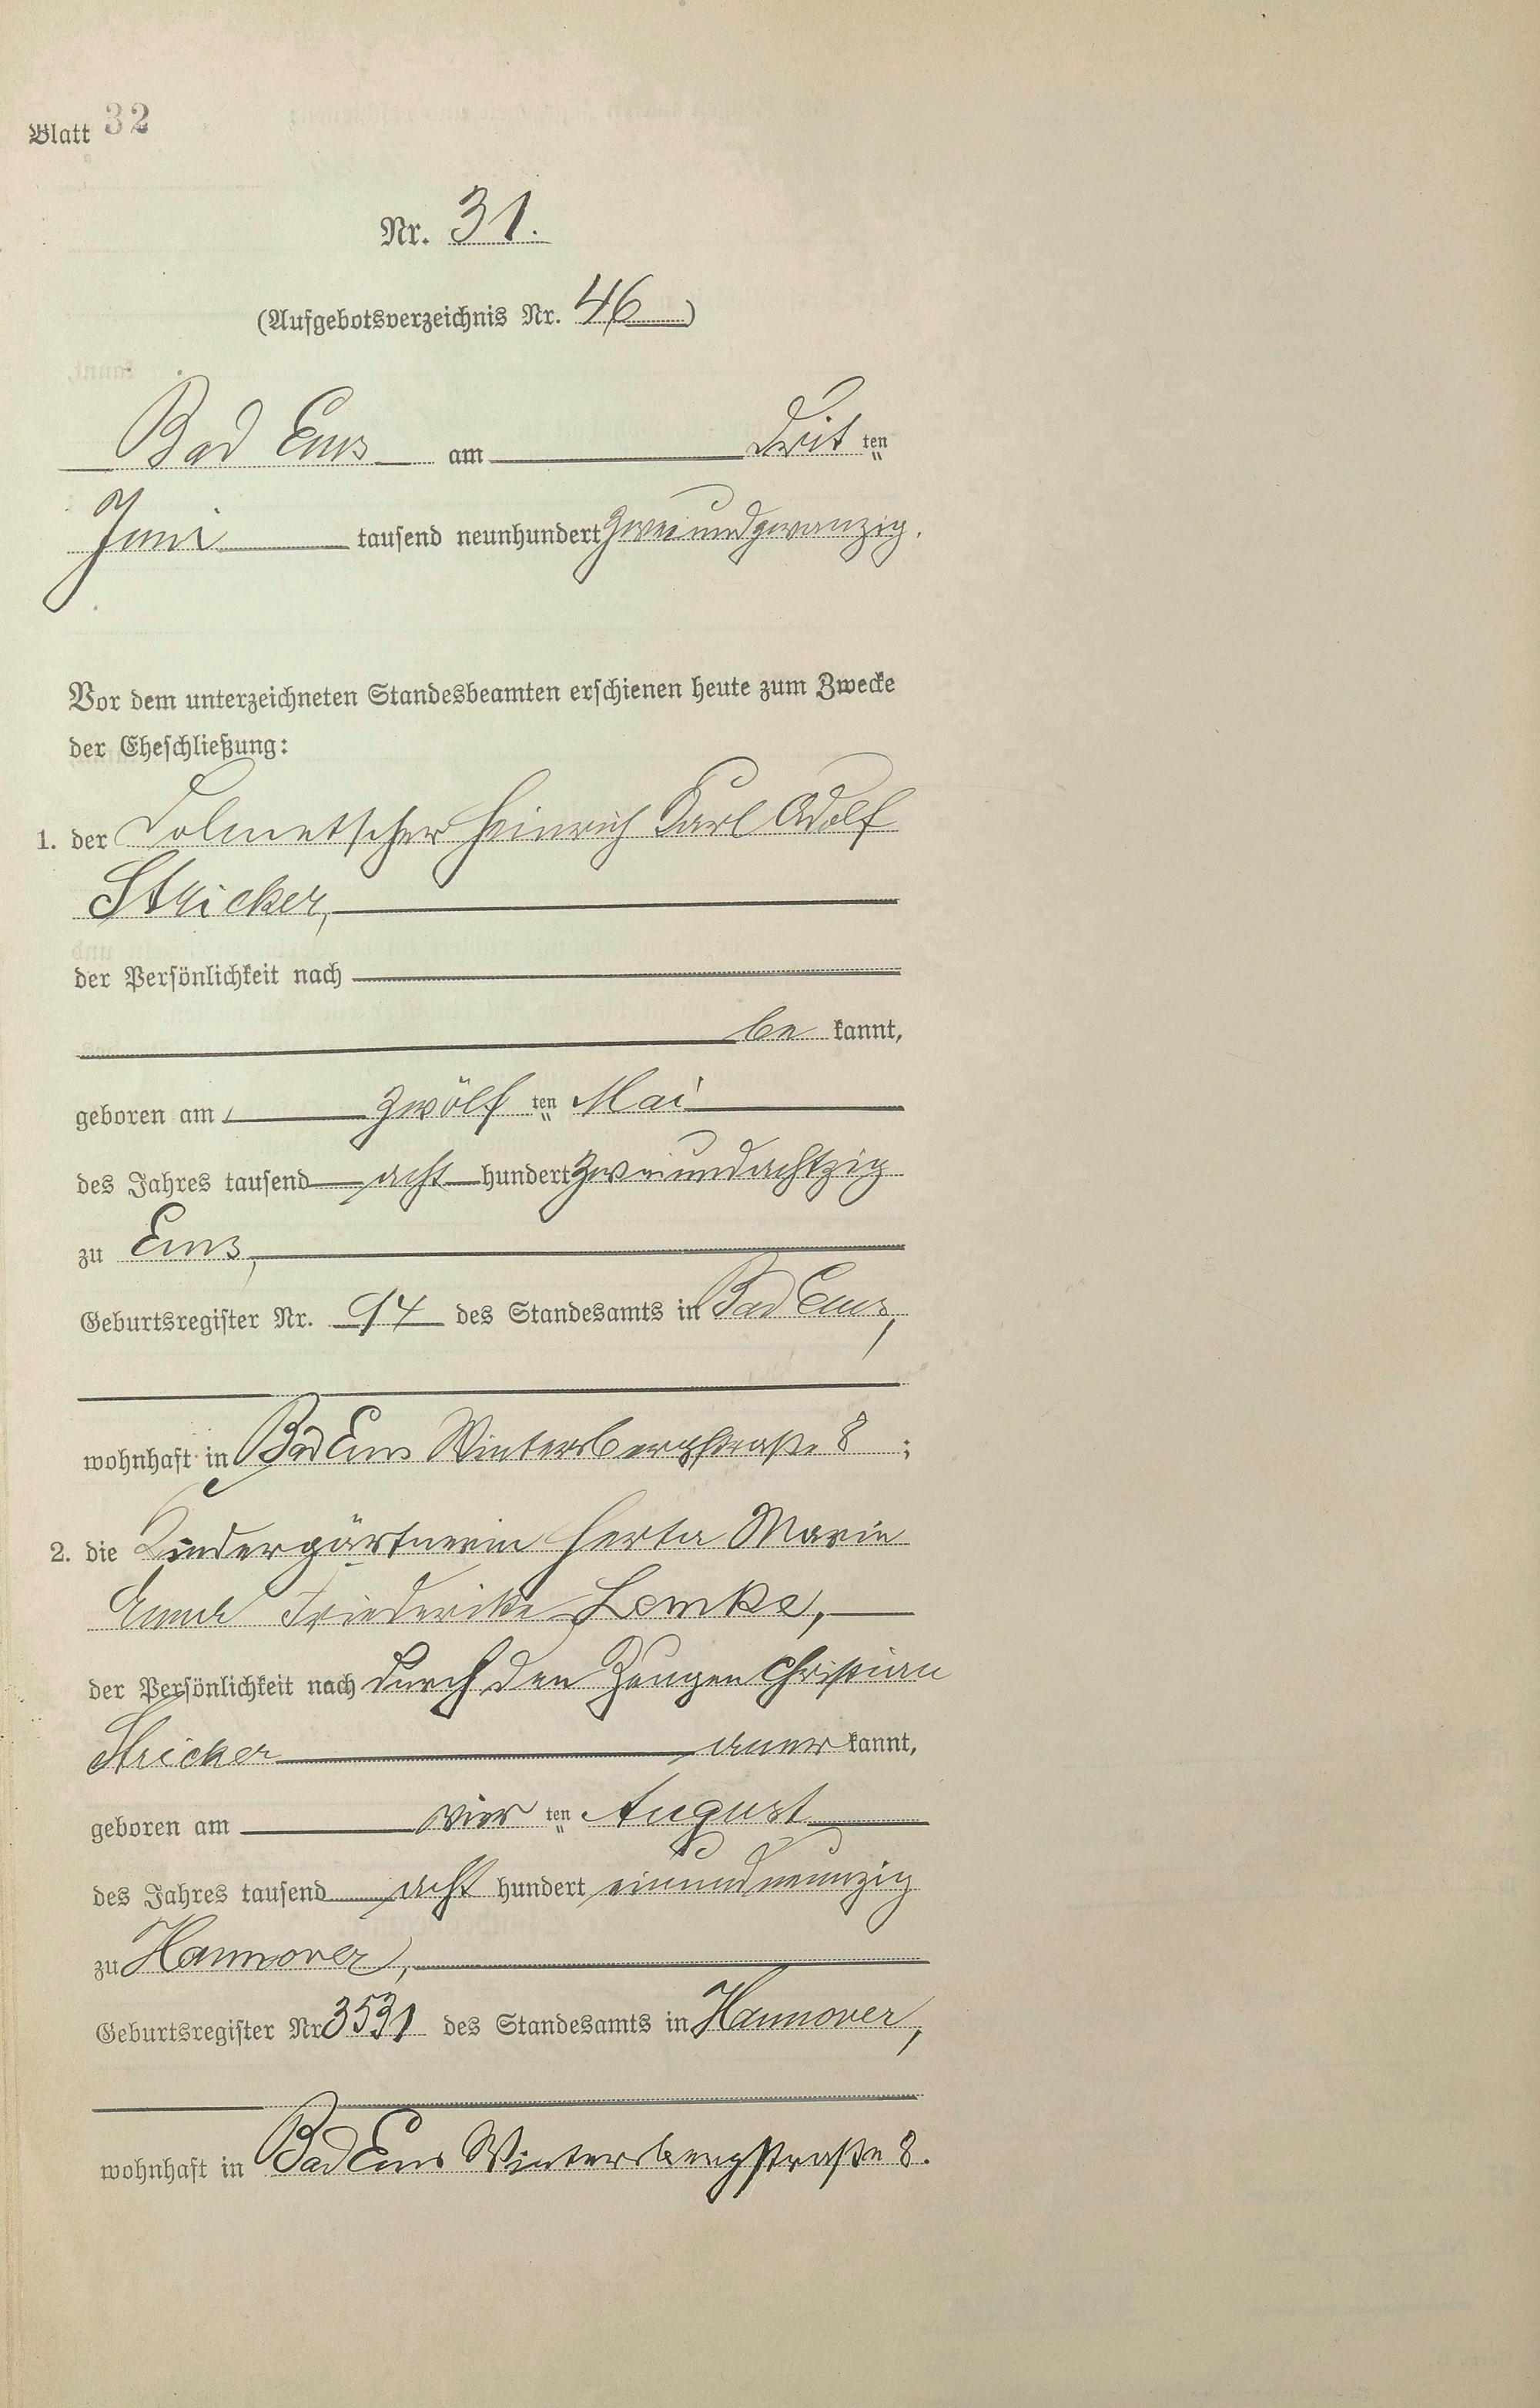 Blatt 32
Nr. 31.
(Aufgebotsverzeichnis Nr. 46)
Bad Ems am Dritten
Juni tausend neunhundert zweiundzwanzig.
Vor dem unterzeichneten Standesbeamten erschienen heute zum Zwecke
der Eheschließung:
1. der Dolmetscher Heinrich Karl Adolf
Stricker,
der Persönlichkeit nach
be kannt,
geboren am zwölf ten Mai
des Jahres tausend acht hundert zweiundachtzig
zu Ems,
Geburtsregister Nr. 94 des Standesamts in Bad Ems,
wohnhaft in Bad Ems Wintersbergstraße 8 ;
2. die Kindergärtnerin Herta Marie
Friederike Lemke,
der Persönlichkeit nach durch den Zeugen Christian
Stricker aner kannt,
geboren am vier ten August
des Jahres tausend acht hundert einundneunzig
zu Hannover,
Geburtsregister Nr 3531 des Standesamts in Hannover,
wohnhaft in Bad Ems Wintersbergstraße 8.